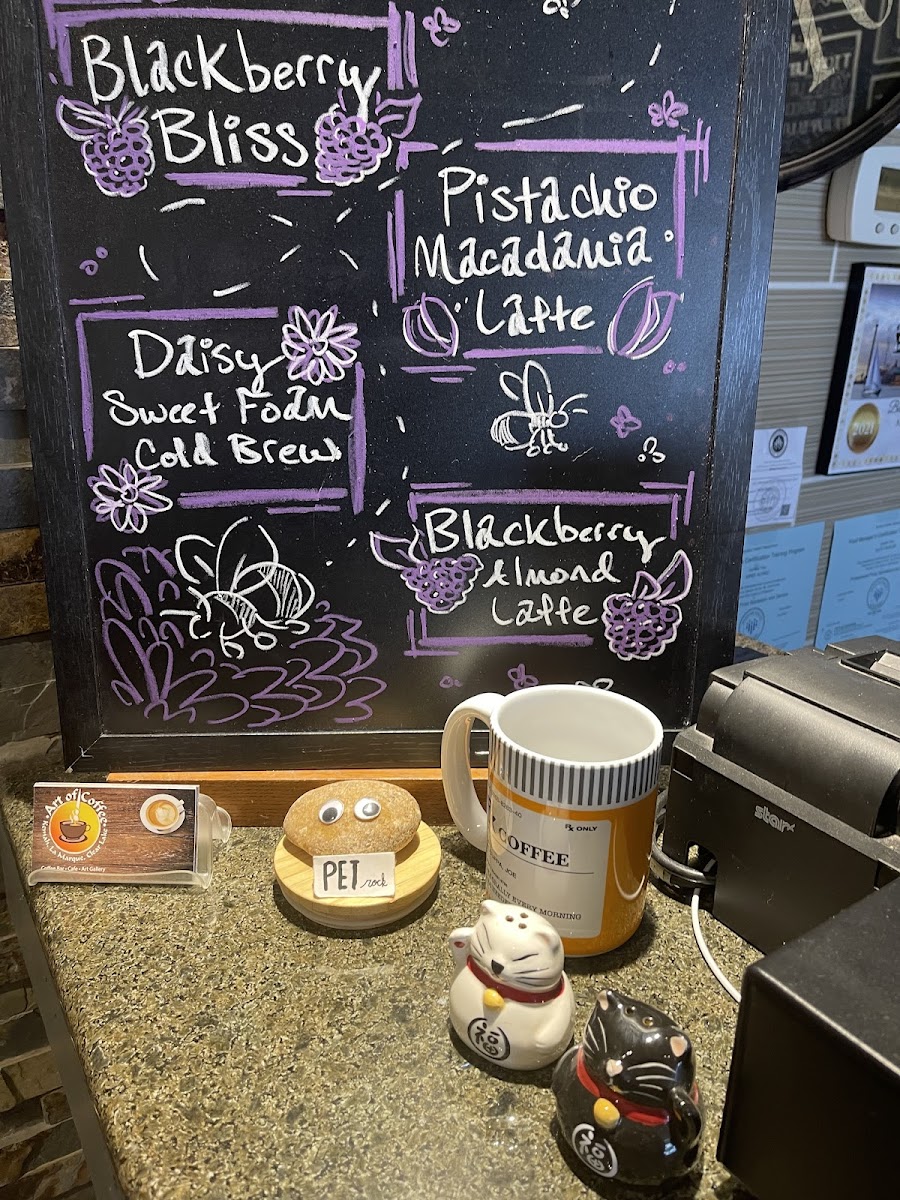 Blackberry
Bliss
Pistachio
Macadamia
Latte
Daisy
Sweet Foam
Cold Brew
Blackberry
Almond
Latte
Art of Coffee
Kemah, La Marque, Clear Lake
Coffee Bar • Cafe • Art Gallery
PET rock
Rx ONLY
COFFEE
JOE
EVERY MORNING
star
福
福
2021